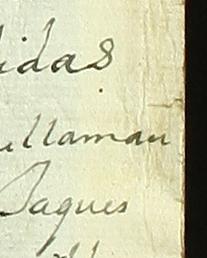 idas
ellaman
Jaques